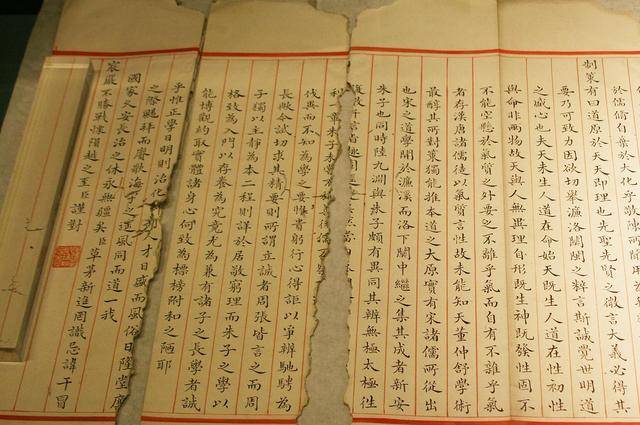 制策有曰道原於天天即理也先聖先賢之微言大義必得其
要乃可致力因欲切舉濂洛關閩之粹言斯誠覺世明道
之盛心也夫天未生人道在命始天既生人道在性初性
與命非兩物故天與人無異理自形既生神既發性固不
不能空懸於氣質之外要之不離乎氣而自有不離乎氣
者存漢唐諸儒徒以氣質言性故未能知天董仲舒學術
最醇其所對策獨能推本道之大原實有宋諸儒所從出
也宋之道學開於濂溪而洛下關中繼之集其成者新安
朱子也同時陸九淵與朱子頗有異同其辨無極太極往
伐異而不知為學之要惟嘗躬行心得詎以爭辨馳騁為
長歟今試切求其精要則所謂立誠者周張皆言之而周
子獨以主靜為本二程則詳於居敬窮理而朱子之學以
格致為入門以存養為究竟尤為兼有諸子之長學者誠
能博觀約取實體諸身心何致為標榜附和之陋耶
乎惟正學日明則治化人才日盛而風俗日隆堂廉
之際颺拜而賡歌海宇之遙風同而道一我
國家久安長治之休永無疆矣臣草茅新進罔識忌諱干冒
宸嚴不勝戰慄隕越之至臣謹對